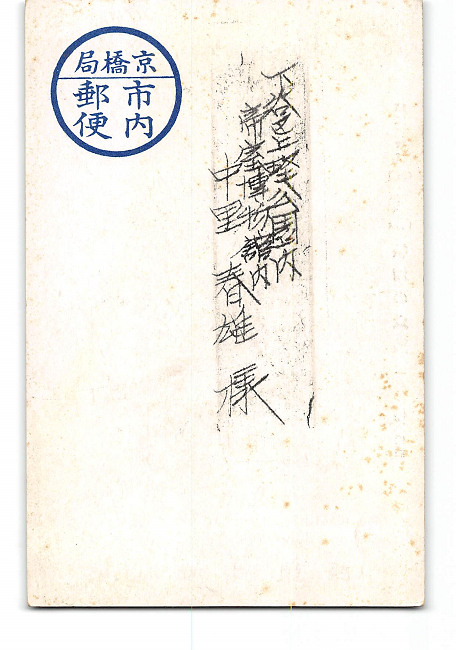 京橋局
市内
郵便
下谷上野公園内
帝室博物館内
中野 春雄 様